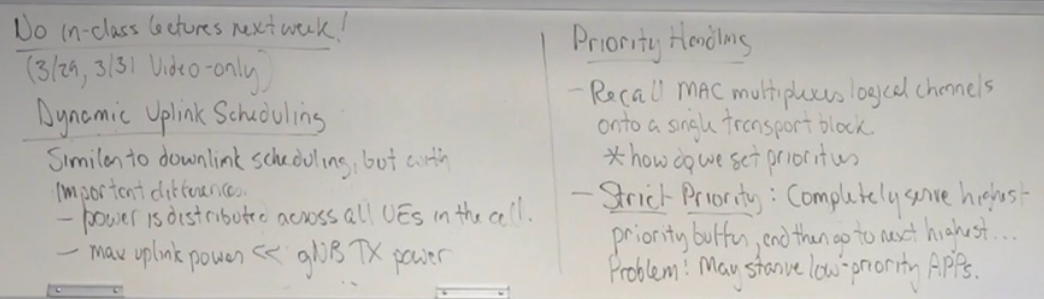 No in-class lectures next week!
(3/29, 3/31 Video-only)
Dynamic Uplink Scheduling
Similar to downlink scheduling, but with
important differences.
- power is distributed across all UEs in the cell.
- max uplink power << gNB TX power
Priority Handling
- Recall MAC multiplexes logical channels
onto a single transport block
* how do we set priorities
- Strict Priority: Completely serve highest
priority buffer, and then go to next highest...
Problem: May starve low-priority APPs.